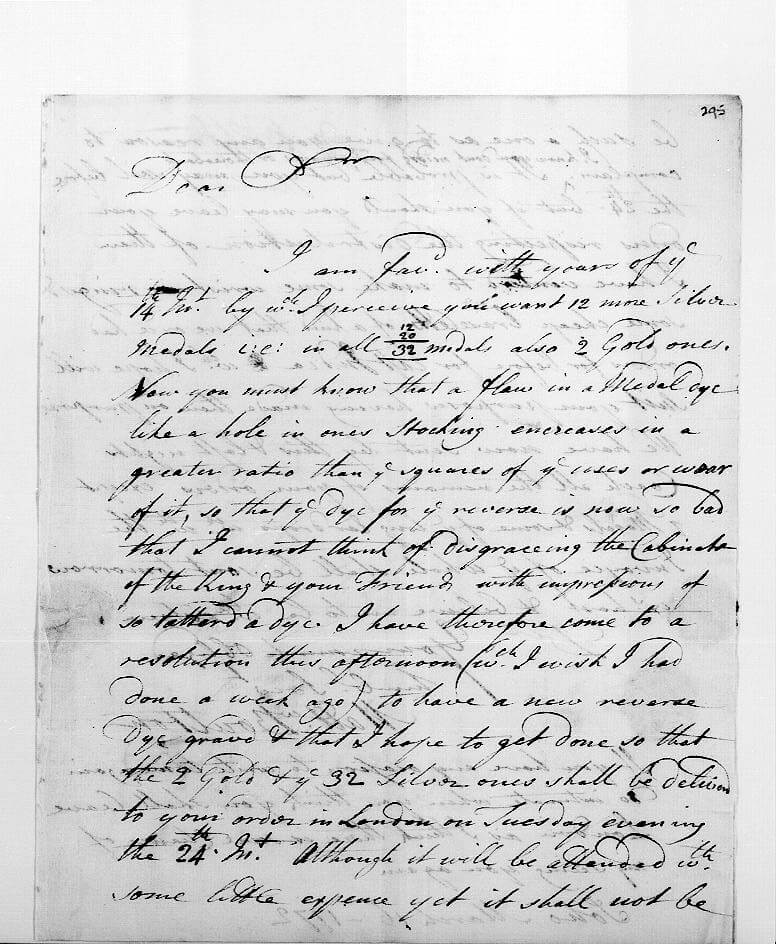 295
Dear Sir
I am fav.d with yours of ye
14th Inst. by wch. I perceive you want 12 more Silver
Medals i:e: in all 12 20 32 medals also 2 Gold ones.
Now you must know that a flaw in a Medal dye
like a hole in ones Stocking encreases in a
greater ratio than ye squares of ye uses or wear
of it, so that ye dye for ye reverse is now so bad
that I cannot think of disgraceing the Cabinets
of the King & your Friends with impressions of
so tatterd a dye. I have therefore come to a
resolution this afternoon (wch. I wish I had
done a week ago) to have a new reverse
Dye grave & that I hope to get done so that
the 2 Gold & ye 32 Silver ones shall be deliverd
to your order in London on Tuesday evening
the 24th Inst. Although it will be attended wth.
some little expence yet it shall not be